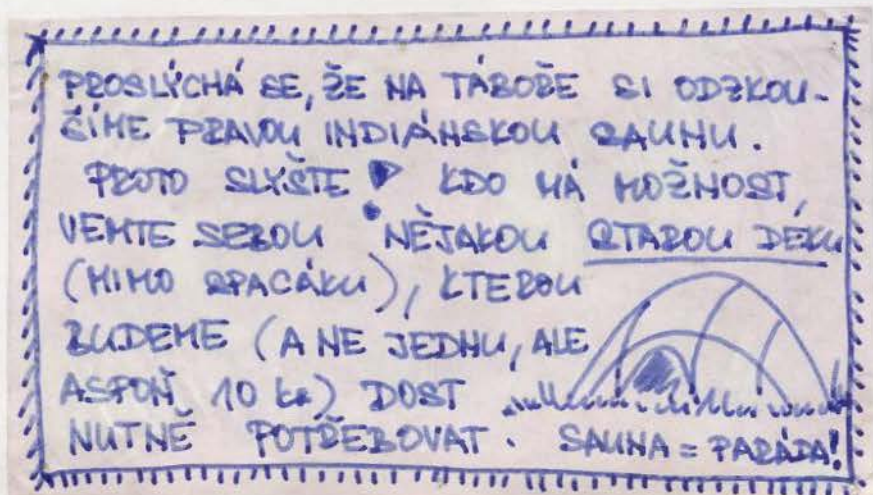 PROSLÝCHÁ SE, ŽE NA TÁBOŘE SI ODZKOU-
ŠÍME PRAVOU INDIÁNSKOU SAUNU.
PROTO SLYŠTE! KDO MÁ MOŽNOST,
VEMTE SEBOU NĚJAKOU STAROU DEKU
(MIMO SPACÁKU), KTEROU
BUDEME (A NE JEDNU, ALE
ASPOŇ 10 ks) DOST
NUTNĚ POTŘEBOVAT. SAUNA = PARÁDA!